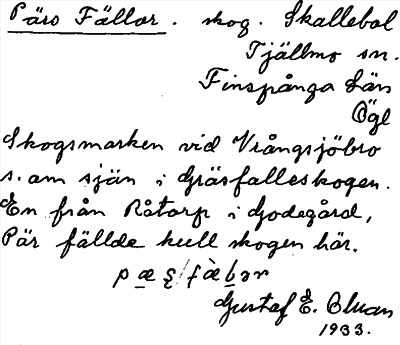 Pärs Fällor. skog. Skallebol
Tjällmo sn.
Finspånga Län
Ögl
Skogsmarken vid Vrångsjöbro
s. om sjön i Gräsfalleskogen.
En från Råtorp i Godegård,
Pär fällde kull skogen här.
Gustaf E.
1933.